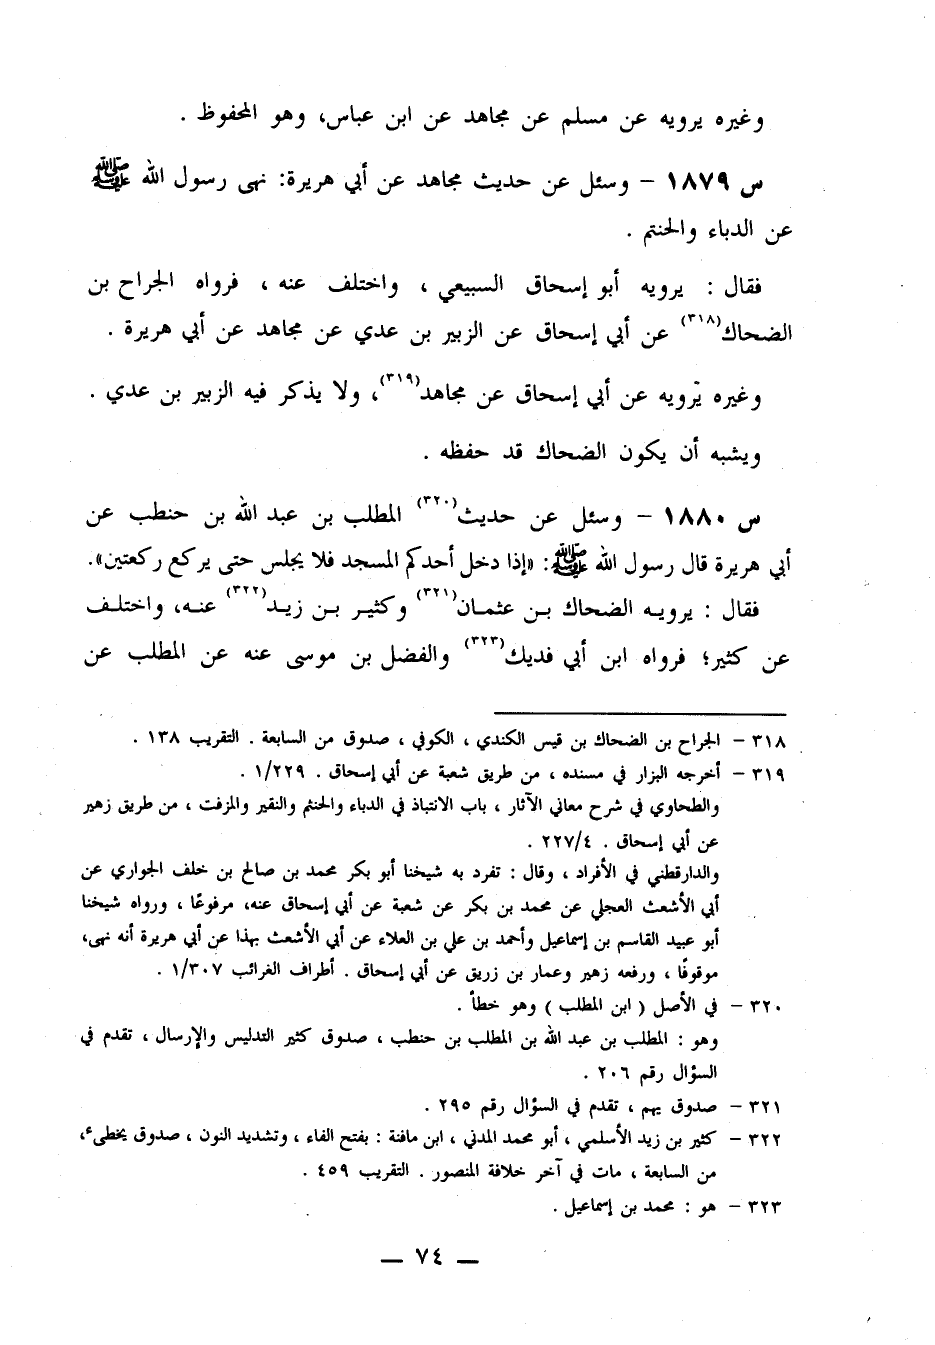 وغيره يرويه عن مسلم عن مجاهد عن ابن عباس، وهو المحفوظ .
س ١٨٧٩ – وسئل عن حديث مجاهد عن أبي هريرة: نهى رسول الله ﷺ
عن الدباء والحنتم .
فقال : يرويه أبو إسحاق السبيعي ، واختلف عنه ، فرواه الجراح بن
الضحاك(٣١٨) عن أبي إسحاق عن الزبير بن عدي عن مجاهد عن أبي هريرة .
وغيره يرويه عن أبي إسحاق عن مجاهد(٣١٩)، ولا يذكر فيه الزبير بن عدي .
ويشبه أن يكون الضحاك قد حفظه .
س ١٨٨٠ – وسئل عن حديث(٣٢٠) المطلب بن عبد الله بن حنطب عن
أبي هريرة قال رسول الله ﷺ: «إذا دخل أحدكم المسجد فلا يجلس حتى يركع ركعتين».
فقال : يرويه الضحاك بن عثمان(٣٢١) وكثير بن زيد(٣٢٢) عنه، واختلف
عن كثير؛ فرواه ابن أبي فديك(٣٢٣) والفضل بن موسى عنه عن المطلب عن
٣١٨ – الجراح بن الضحاك بن قيس الكندي ، الكوفي ، صدوق من السابعة . التقريب ١٣٨ .
٣١٩ – أخرجه البزار في مسنده ، من طريق شعبة عن أبي إسحاق . ١/٢٢٩ .
والطحاوي في شرح معاني الآثار ، باب الانتباذ في الدباء والحنتم والنقير والمزفت ، من طريق زهير
عن أبي إسحاق . ٢٢٧/٤ .
والدارقطني في الأفراد ، وقال : تفرد به شيخنا أبو بكر محمد بن صالح بن خلف الجواري عن
أبي الأشعث العجلي عن محمد بن بكر عن شعبة عن أبي إسحاق عنه، مرفوعًا ، ورواه شيخنا
أبو عبيد القاسم بن إسماعيل وأحمد بن علي بن العلاء عن أبي الأشعث بهذا عن أبي هريرة أنه نهى،
موقوفًا ، ورفعه زهير وعمار بن زريق عن أبي إسحاق . أطراف الغرائب ١/٣٠٧ .
٣٢٠ – في الأصل ( ابن المطلب ) وهو خطأ .
وهو : المطلب بن عبد الله بن المطلب بن حنطب ، صدوق كثير التدليس والإرسال ، تقدم في
السؤال رقم ٢٠٦ .
٣٢١ – صدوق يهم ، تقدم في السؤال رقم ٢٩٥ .
٣٢٢ – كثير بن زيد الأسلمي ، أبو محمد المدني ، ابن مافنة : بفتح الفاء ، وتشديد النون ، صدوق يخطىء،
من السابعة ، مات في آخر خلافة المنصور . التقريب ٤٥٩ .
٣٢٣ – هو : محمد بن إسماعيل .
— ٧٤ —